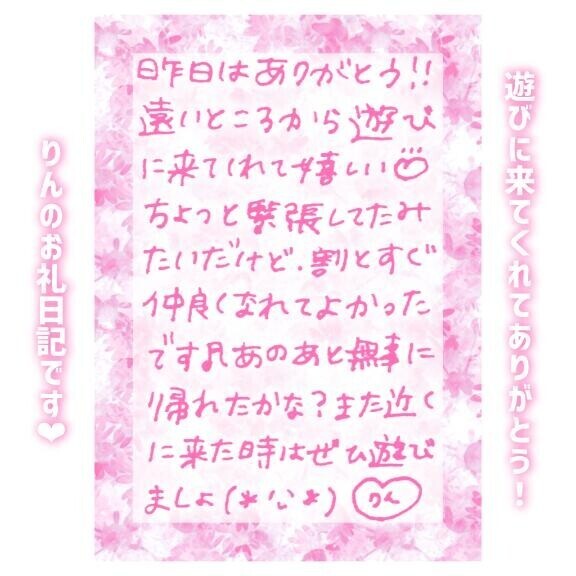 遊びに来てくれてありがとう！
昨日はありがとう!!
遠いところから遊び
に来てくれて嬉しい♡
ちょっと緊張してたみ
たいだけど、割とすぐ
仲良くなれてよかった
です♫あのあと無事に
帰れたかな？また近く
に来た時はぜひ遊び
ましょ(*'ㅅ'*) りん
りんのお礼日記です❤